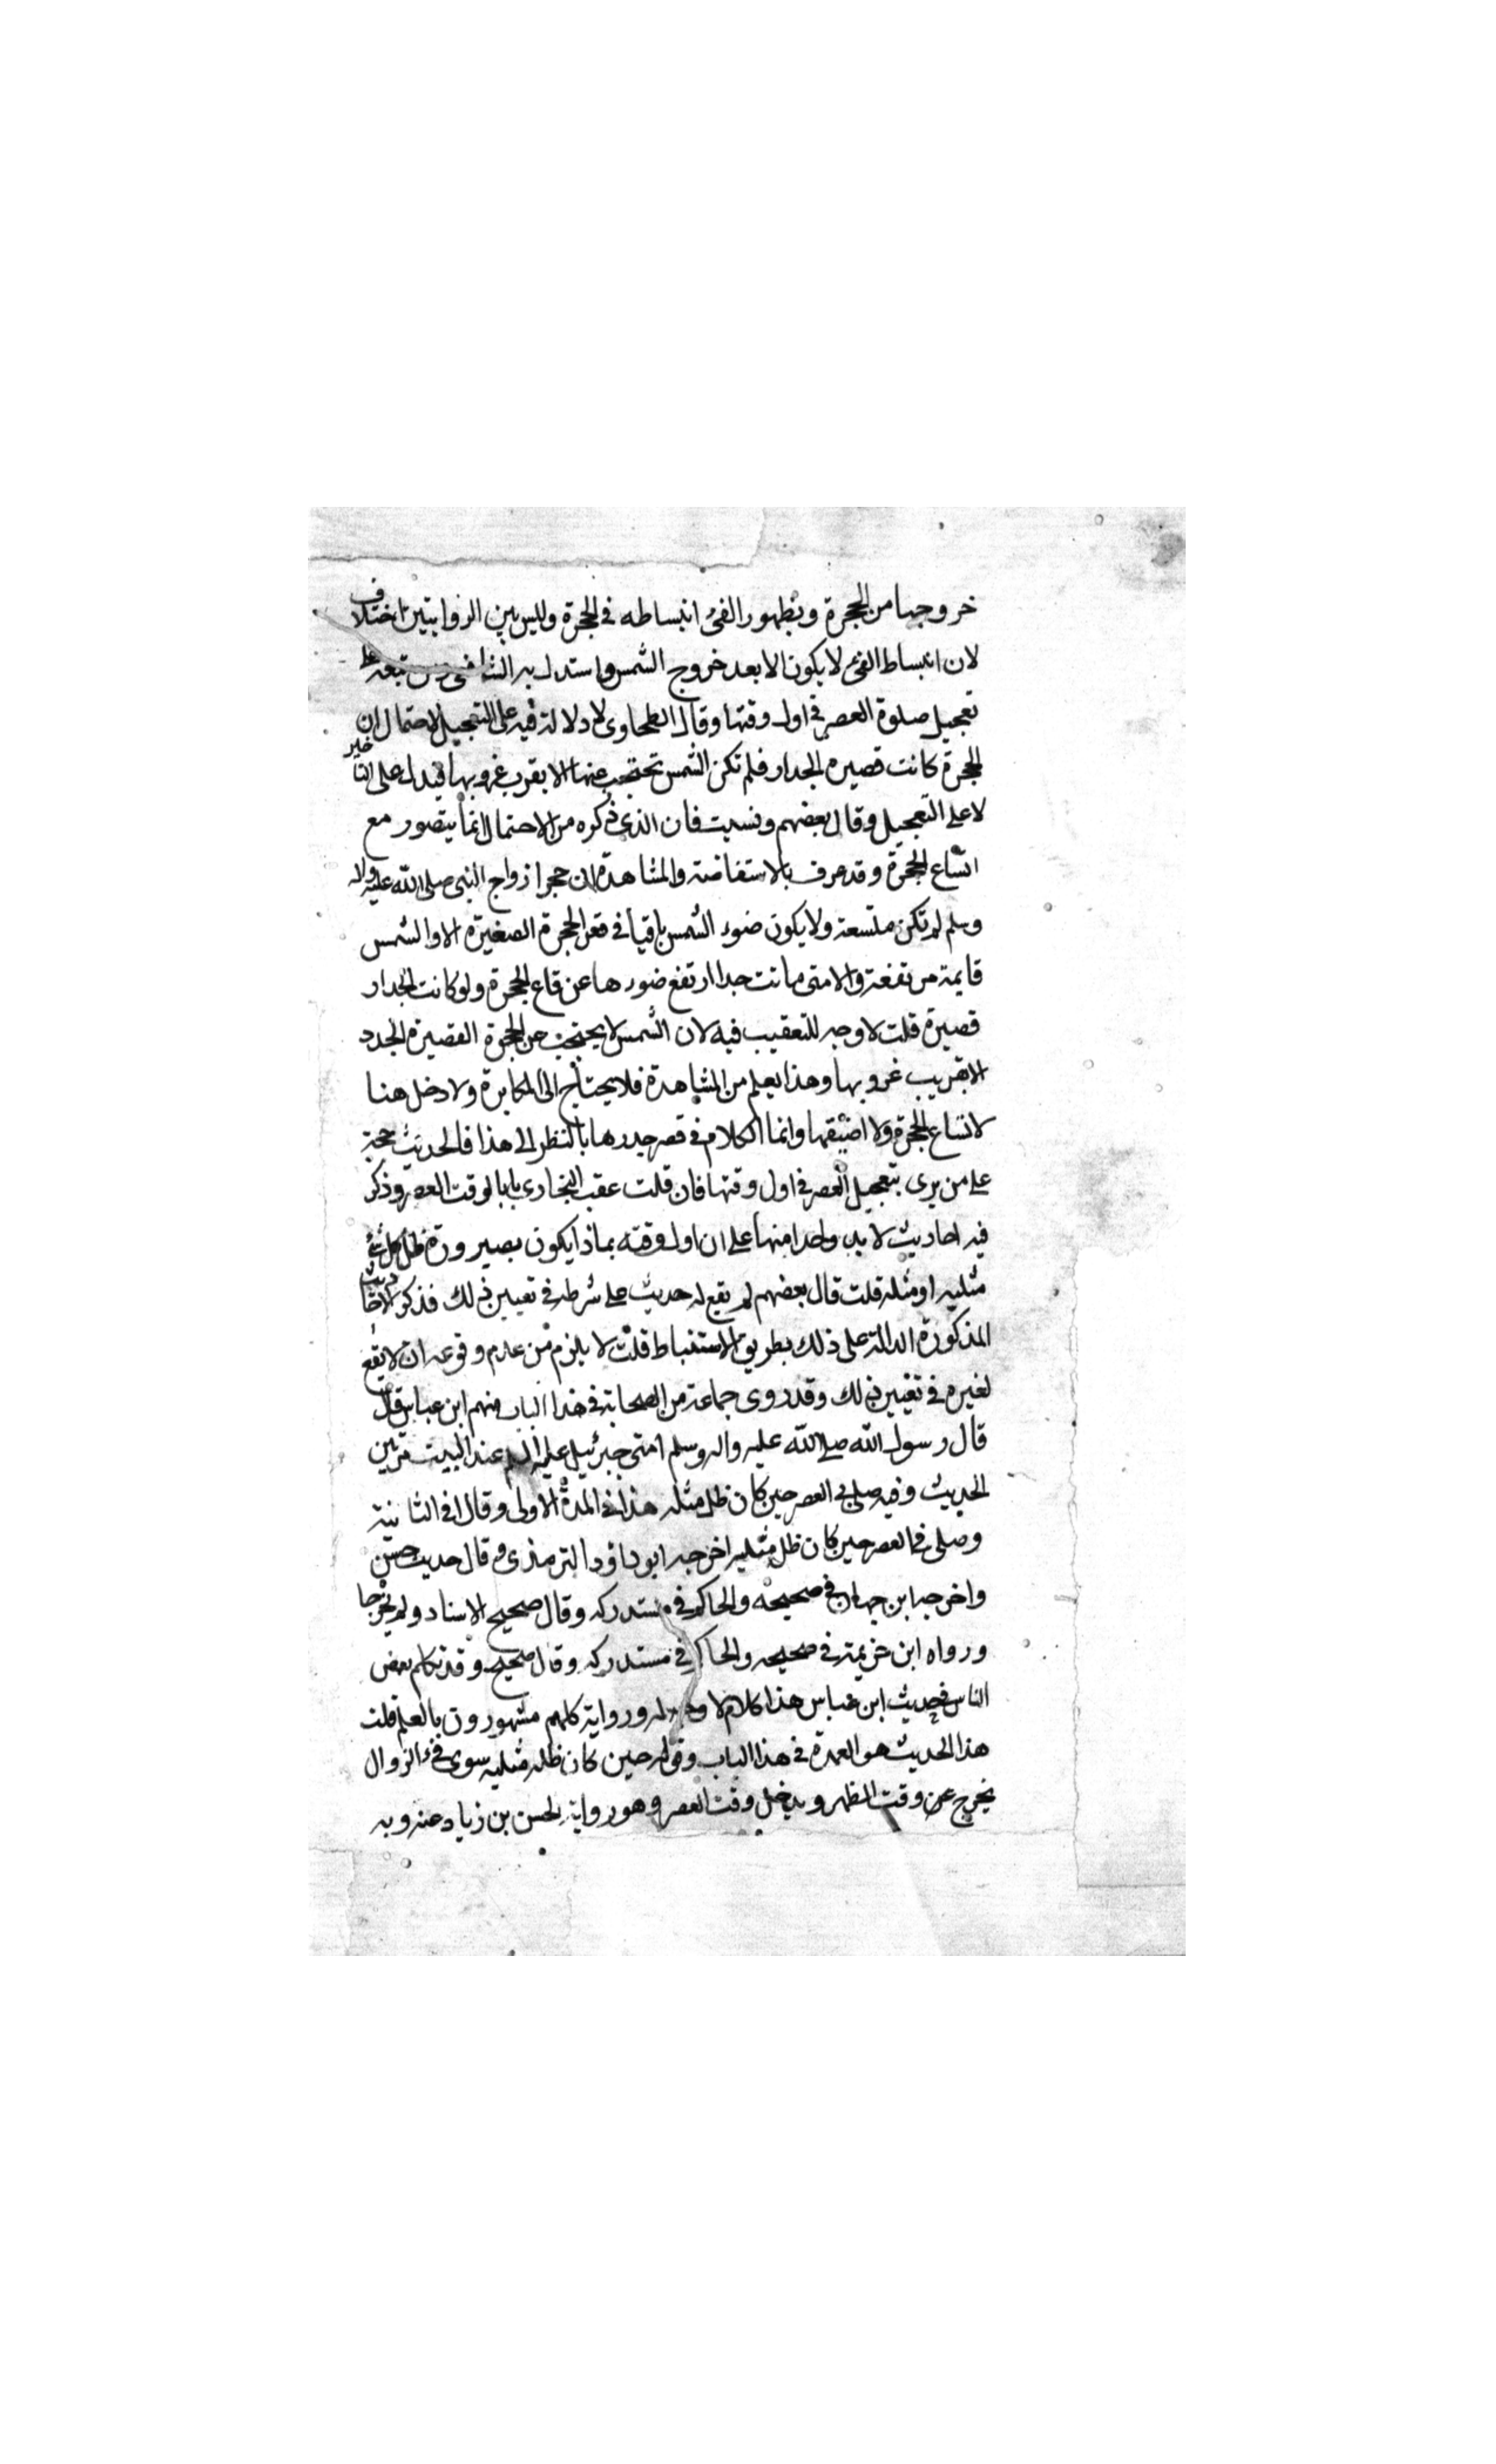 خروجها من الحجرة وبظهور الفئ انبساطه في الحجرة وليس بين الروايتين اختلاف
لان انبساط الفئ لا يكون الا بعد خروج الشمس واستدل به الشافعي ومن تبعه على
تعجيل صلوة العصر في اول وقتها وقال الطحاوي لا دلالة فيه على التعجيل لاحتمال ان
الحجرة كانت قصيرة الجدار فلم تكن الشمس تحتجب عنها الا بقرب غروبها فيدل على التاخير
لا على التعجيل وقال بعضهم ونسبت فان الذي ذكره من الاحتمال انما يتصور مع
اتساع الحجرة وقد عرف بالاستفاضة والمشاهدة ان حجر ازواج النبي صلى الله عليه واله
وسلم لم تكن متسعة ولا يكون ضوء الشمس باقيا في قعر الحجرة الصغيرة الا والشمس
قايمة مرتفعة والا متى مانت جدا ارتفع ضوءها عن قاع الحجرة ولو كانت الجدار
قصيرة قلت لا وجه للتعقيب فيه لان الشمس لا يحتجب عن الحجرة القصيرة الجدد
الا بقريب غروبها وهذا يعلم من المشاهدة فلا يحتاج الى المكابرة ولا دخل هنا
لاتساع الحجرة ولا اضيقها وانما الكلام في قصر جدرها بالنظر الى هذا فالحديث حجة
على من يرى بتعجيل العصر في اول وقتها فان قلت عقب البخاري بابا لوقت العصر وذكر
فيه احاديث لا يدل واحدا منها على ان اول وقته بماذا يكون بصيرورة ظل كل شئ
مثليه او مثله قلت قال بعضهم لم يقع له حديث على شرطه في تعيين ذلك فذكر الاحاديث
المذكورة الدالة على ذلك بطريق الاستنباط قلت لا يلزم من عدم وقوعه ان لا يقع
لغيره في تعيين ذلك وقد روى جماعة من الصحابة في هذا الباب منهم ابن عباس قال
قال رسول الله صلى الله عليه واله وسلم امني جبرئيل عليه السلم عند البيت مرتين
الحديث وفيه صلى بي العصر حين كان ظل مثله هذا في المدة الاولى وقال في الثانية
وصلى في العصر حين كان ظل مثليه اخرجه ابو داؤد الترمذي وقال حديث حسن
واخرجه ابن حبان في صحيحه والحاكم في مستدركه وقال صحيح الاسناد ولم يخرجا
ورواه ابن خزيمة في صحيحه والحاكم في مستدركه وقال صحيح وقد تكلم بعض
الناس في حديث ابن عباس هذا كلام لا وجه له ورواية كلهم مشهورون بالعلم قلت
هذا الحديث هو العمدة في هذا الباب وقوله حين كان ظله مثليه سوى فئ الزوال
يخرج عن وقت الظهر ويدخل وقت العصر وهو رواية الحسن بن زياد عنه وبه